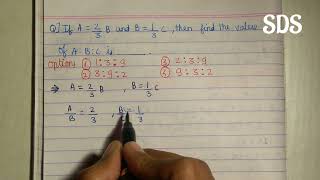 SDS
Q] If A = 2/3 B and B = 1/3 C, then find the values
of A:B:C is
option ① 1:3:9 ③ 2:3:9
② 3:9:2 ④ 9:3:2
⇒ A = 2/3 B , B = 1/3 C
A/B = 2/3 , B/C = 1/3